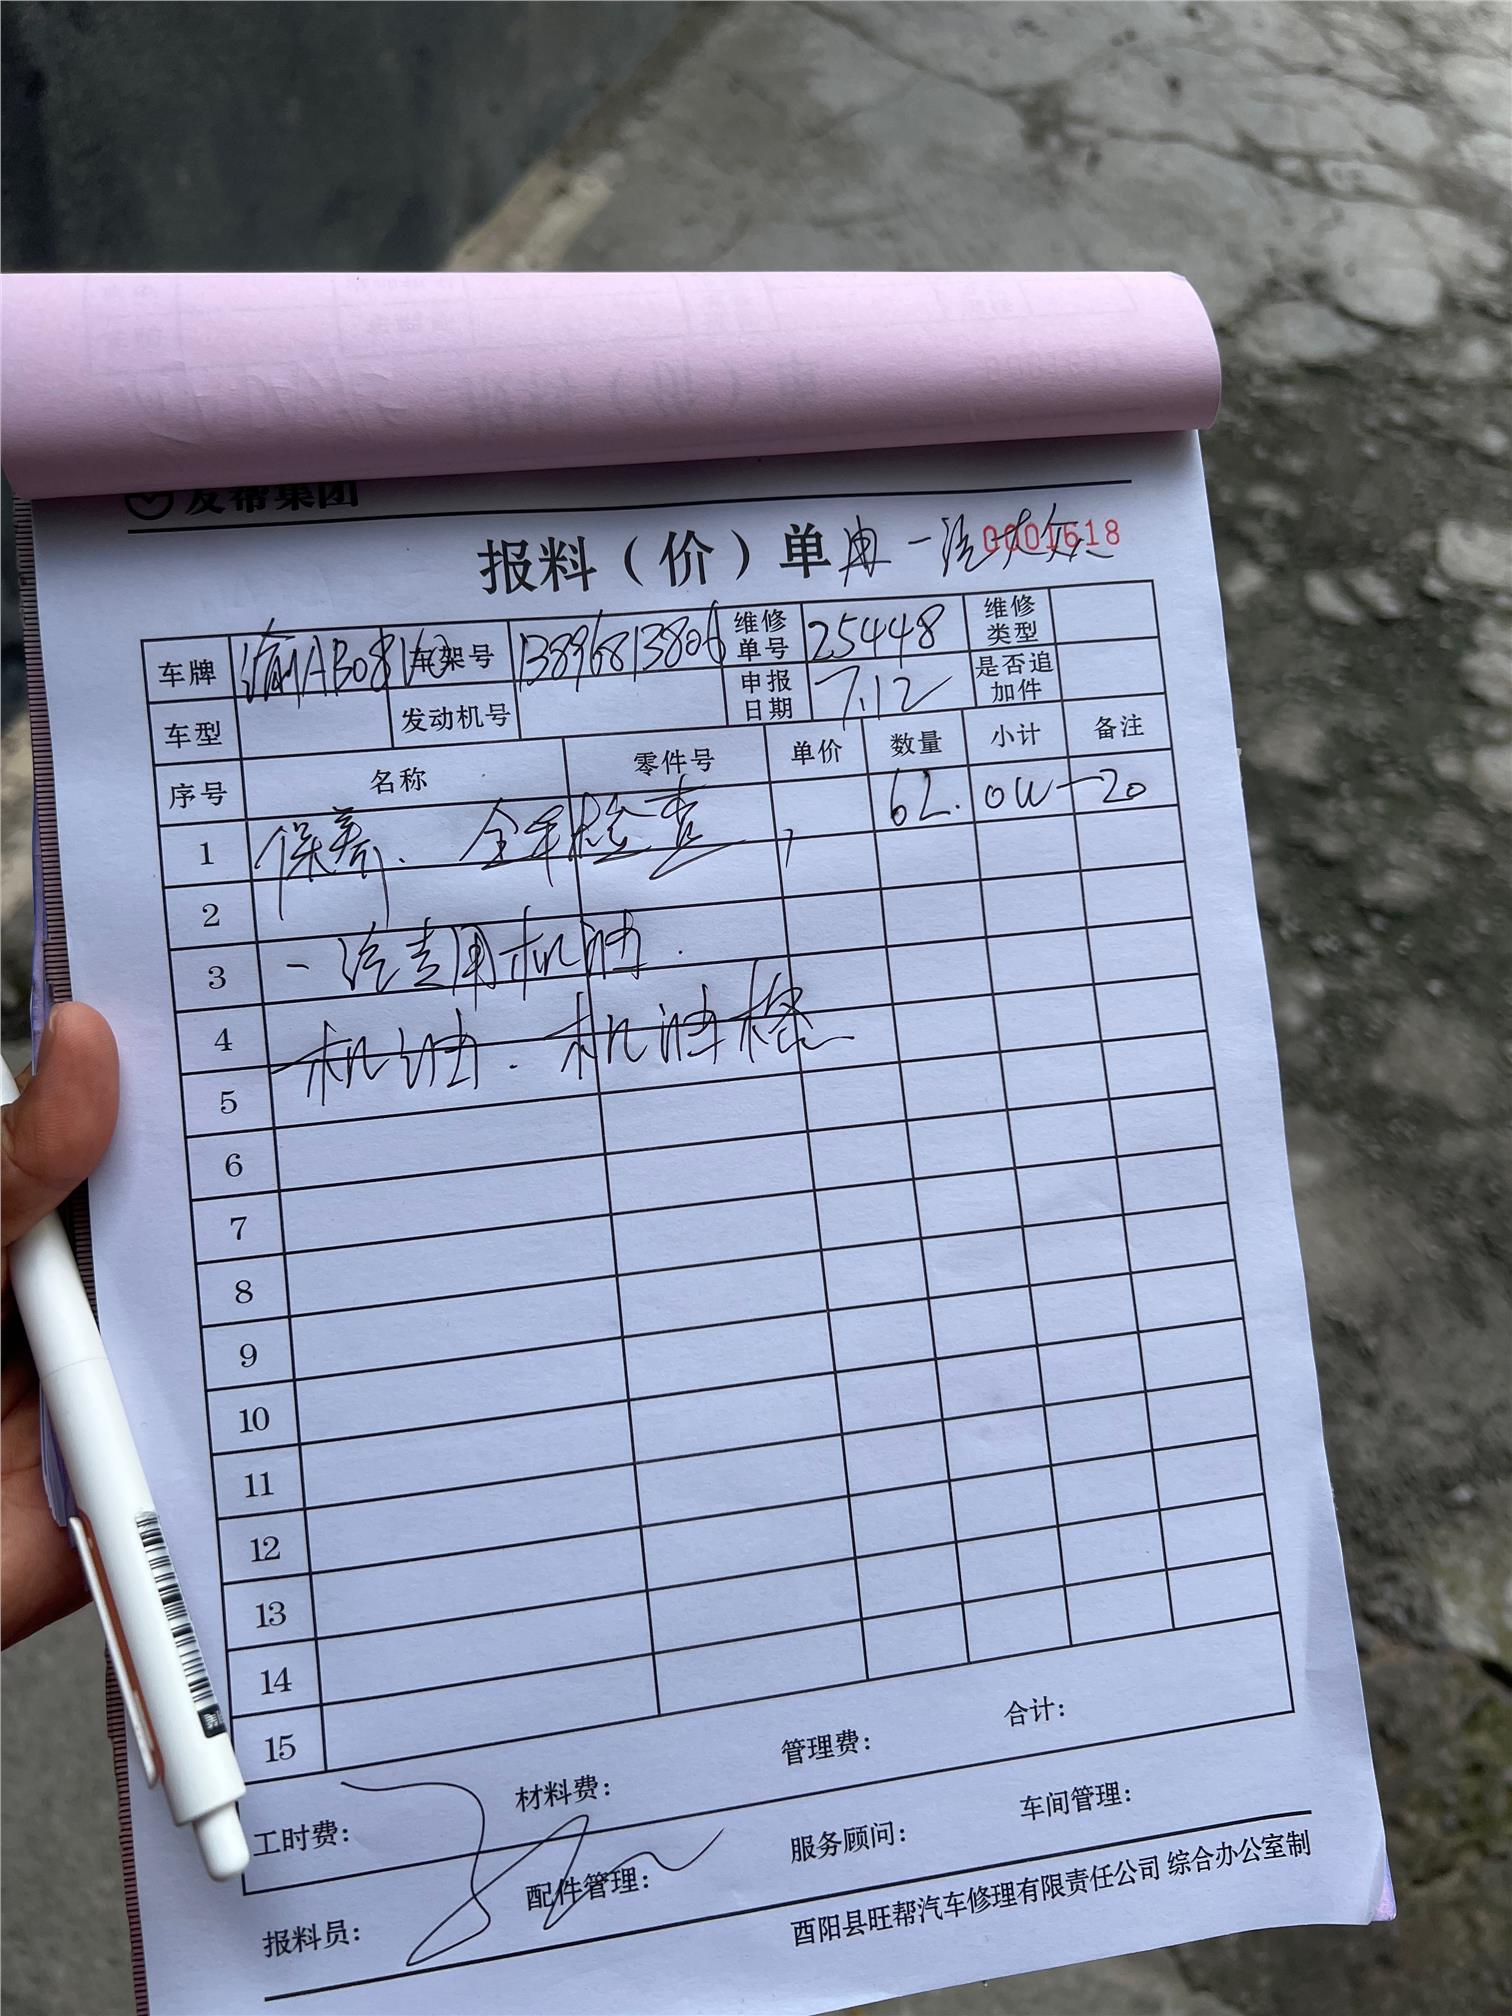 友帮集团
报料（价）单 一汽大众 0001618
车牌 车架号 13896813806 维修单号 25448 维修类型
车型 发动机号 申报日期 7.12 是否追加件
序号 名称 零件号 单价 数量 小计 备注
1 保养、全车检查， 6L. 0W-20
2
3 一汽专用机油.
4 机油. 机油格
5
6
7
8
9
10
11
12
13
14
15
工时费： 材料费： 管理费： 合计：
报料员： 配件管理： 服务顾问： 车间管理：
酉阳县旺帮汽车修理有限责任公司 综合办公室制